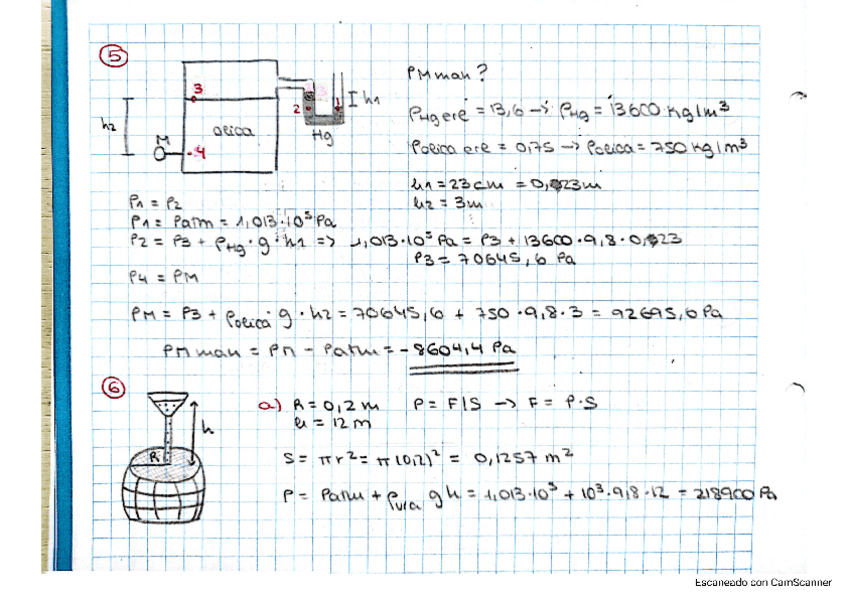 5
PM man ?
3
2
1
I h1
h2
M
olioa
4
Hg
ρHg erl = 13,6 → ρHg = 13600 kg/m³
ρolioa erl = 0,75 → ρolioa = 750 kg/m³
h1 = 23 cm = 0,23 m
h2 = 3 m
P1 = P2
P1 = Patm = 1,013·10⁵ Pa
P2 = P3 + ρHg · g · h1 => 1,013·10⁵ Pa = P3 + 13600 · 9,8 · 0,23
P3 = 70645,6 Pa
P4 = PM
PM = P3 + ρolioa g · h2 = 70645,6 + 750 · 9,8 · 3 = 92695,6 Pa
PM man = PM - Patm = -8604,4 Pa
6
h
R
a) R = 0,2 m P = F/S → F = P·S
h = 12 m
S = πr² = π(0,2)² = 0,1257 m²
P = Patm + ρura gh = 1,013·10⁵ + 10³·9,8·12 = 218900 Pa
Escaneado con CamScanner